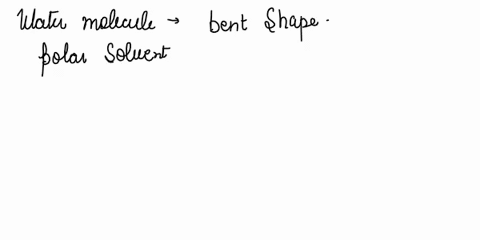 Water molecule → bent Shape.
polar Solvent